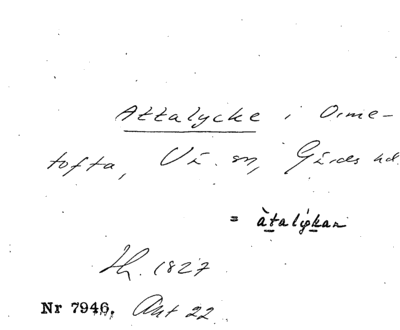 Attalycke i Orme-
tofta, Vä. sn, Gärds hd.
= àtalýkan
Lh. 1827
Nr 7946. Akt 22